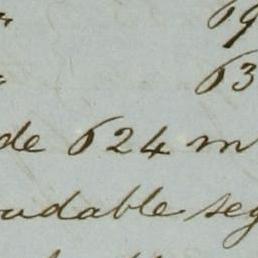 69
63
de 624 m
udable seg